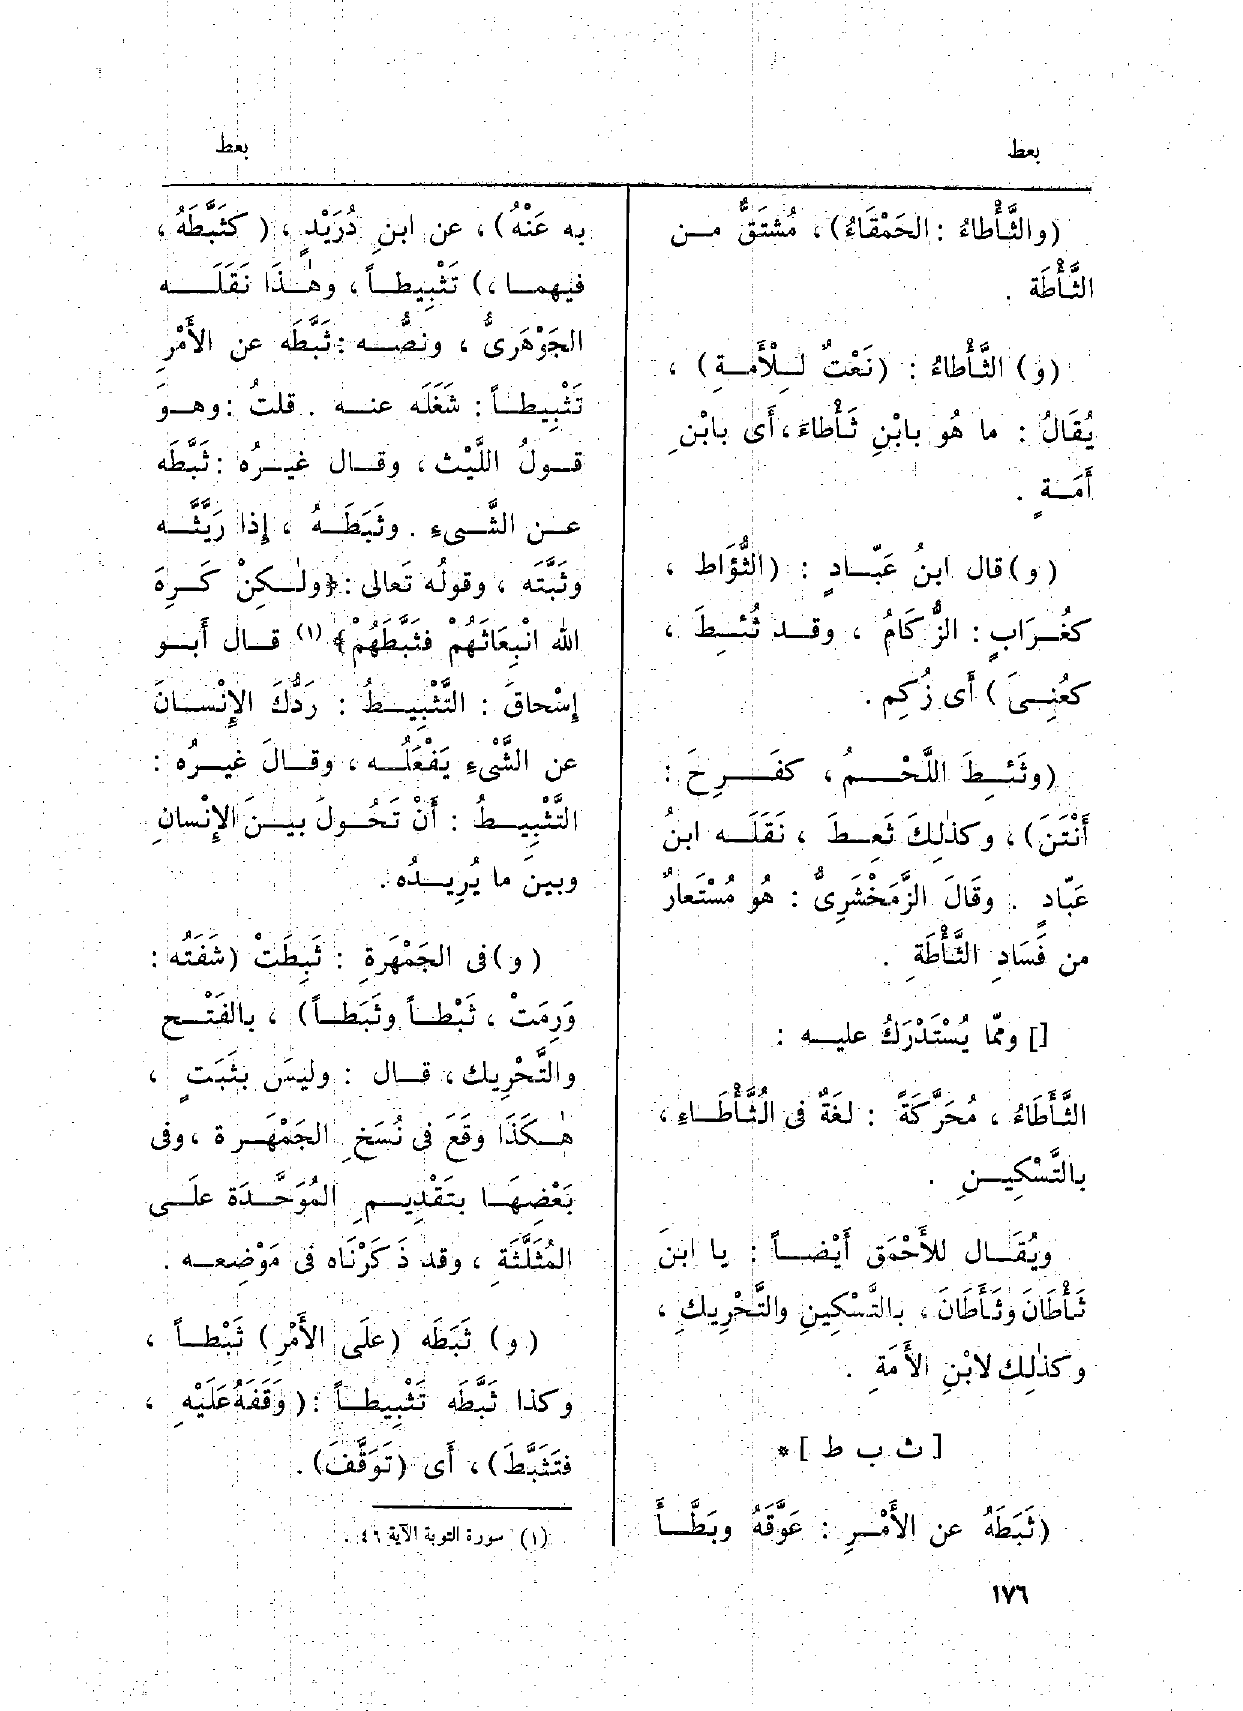 بعط
بعط
(والثَّأْطاءُ : الحَمْقَاءُ) ، مُشتَقٌّ مــن
الثَّأْطَة .
(و) الثَّأْطاءُ : (نَعْتٌ لــِلْأَمــةِ) ،
يُقَالُ : ما هُو بابْنِ ثَأْطاءَ، أَى بابْنِ
أَمَــةٍ .
(و) قال ابنُ عَبّــادٍ : (الثُّؤَاط ،
كغُــرَابٍ : الزُّكَامُ ، وقــد ثُئِــطَ ،
كعُنِــىَ) أَى زُكِم .
(وثَئِــطَ اللَّحْــمُ ، كفَــرِحَ :
أَنْتَنَ) ، وكذٰلِكَ ثَعِــطَ ، نَقَلَــه ابنُ
عَبّادٍ . وقَالَ الزَّمَخْشَرِىُّ : هُو مُسْتَعارٌ
من فَسَادِ الثَّأْطَةِ .
[] وممّا يُسْتَدْرَكُ عليــه :
الثَّأَطَاءُ ، مُحَرَّكَةً : لغَةٌ فى الثَّأْطَــاءِ ،
بالتَّسْكِيــنِ .
ويُقَــال للأَحْمَق أَيْضــاً : يا ابنَ
ثَأْطَانَ وثَأَطَانَ ، بالتَّسْكِينِ والتَّحْرِيكِ ،
وكذٰلِك لابْنِ الأَمَةِ .
[ ث ب ط ] *
(ثَبَطَهُ عن الأَمْــرِ : عَوَّقَهُ وبَطَّــأَ
به عَنْهُ) ، عن ابنِ دُرَيْدٍ ، (كثَبَّطَهُ ،
فيهمــا ،) تَثْبِيطــاً ، وهٰــذَا نَقَلَــه
الجَوْهَرىُّ ، ونصُّــه : ثَبَّطَه عن الأَمْرِ
تَثْبِيطــاً : شَغَلَه عنــه . قلتُ : وهــوَ
قــولُ اللَّيْث ، وقــال غيــرُه : ثَبَّطَه
عــن الشَّــىءِ . وثَبَطَــهُ ، إِذا رَيَّثَــه
وثَبَّتَه ، وقولُه تَعالى : ﴿ولٰــكِنْ كَــرِهَ
الله انْبِعَاثَهُم فثَبَّطَهُمْ﴾ (١) قــال أَبــو
إِسْحاقَ : التَّثْبِيــطُ : رَدُّكَ الإِنْســانَ
عن الشَّىْءِ يَفْعَلُــه ، وقــالَ غيــرُه :
التَّثْبِيــطُ : أَنْ تَحُــولَ بيــنَ الإِنْسانِ
وبينَ ما يُرِيــدُه .
(و) فى الجَمْهَرةِ : ثَبِطَتْ (شَفَتُه :
وَرِمَتْ ، ثَبْطــاً وثَبَطــاً) ، بالفَتْــحِ
والتَّحْرِيك ، قــال : وليسَ بثَبَتٍ ،
هٰــكَذَا وقَعَ فى نُسَخِ الجَمْهَــرة ، وفى
بَعْضِهَــا بتَقْدِيــمِ المُوَحَّــدَة علَــى
المُثَلَّثَةِ ، وقد ذَكَرْنَاه فى مَوْضِعــه .
(و) ثَبَطَه (علَى الأَمْرِ) ثَبْطــاً ،
وكذا ثَبَّطَه تَثْبِيطــاً : (وَقَفَهُ عَلَيْهِ ،
فتَثَبَّطَ) ، أَى (تَوَقَّفَ) .
(١) سورة التوبة الآية ٤٦ .
١٧٦